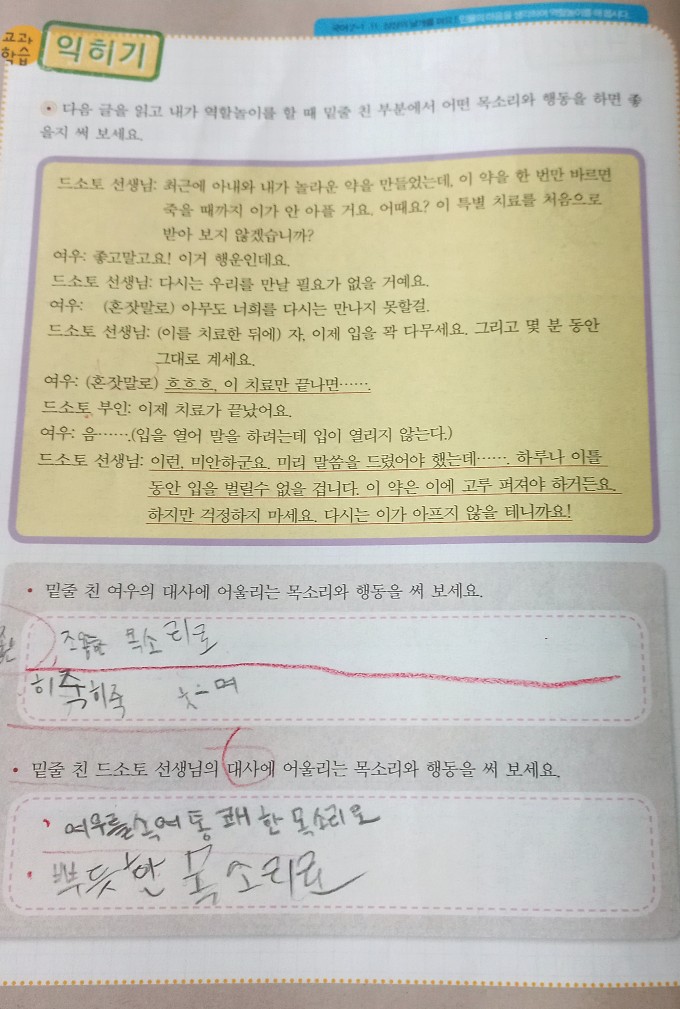 국어 2-1 11. 상상의 날개를 펴요 | 인물의 마음을 생각하며 역할놀이를 해 봅시다.
교과
학습
익히기
• 다음 글을 읽고 내가 역할놀이를 할 때 밑줄 친 부분에서 어떤 목소리와 행동을 하면 좋
을지 써 보세요.
드소토 선생님: 최근에 아내와 내가 놀라운 약을 만들었는데, 이 약을 한 번만 바르면
죽을 때까지 이가 안 아플 거요. 어때요? 이 특별 치료를 처음으로
받아 보지 않겠습니까?
여우: 좋고말고요! 이거 행운인데요.
드소토 선생님: 다시는 우리를 만날 필요가 없을 거예요.
여우: (혼잣말로) 아무도 너희를 다시는 만나지 못할걸.
드소토 선생님: (이를 치료한 뒤에) 자, 이제 입을 꽉 다무세요. 그리고 몇 분 동안
그대로 계세요.
여우: (혼잣말로) 흐흐흐, 이 치료만 끝나면…….
드소토 부인: 이제 치료가 끝났어요.
여우: 음…….(입을 열어 말을 하려는데 입이 열리지 않는다.)
드소토 선생님: 이런, 미안하군요. 미리 말씀을 드렸어야 했는데……. 하루나 이틀
동안 입을 벌릴수 없을 겁니다. 이 약은 이에 고루 퍼져야 하거든요.
하지만 걱정하지 마세요. 다시는 이가 아프지 않을 테니까요!
• 밑줄 친 여우의 대사에 어울리는 목소리와 행동을 써 보세요.
목소리로
히죽히죽 웃으며
• 밑줄 친 드소토 선생님의 대사에 어울리는 목소리와 행동을 써 보세요.
여우를 속여 통쾌한 목소리로
뿌듯한 목소리로